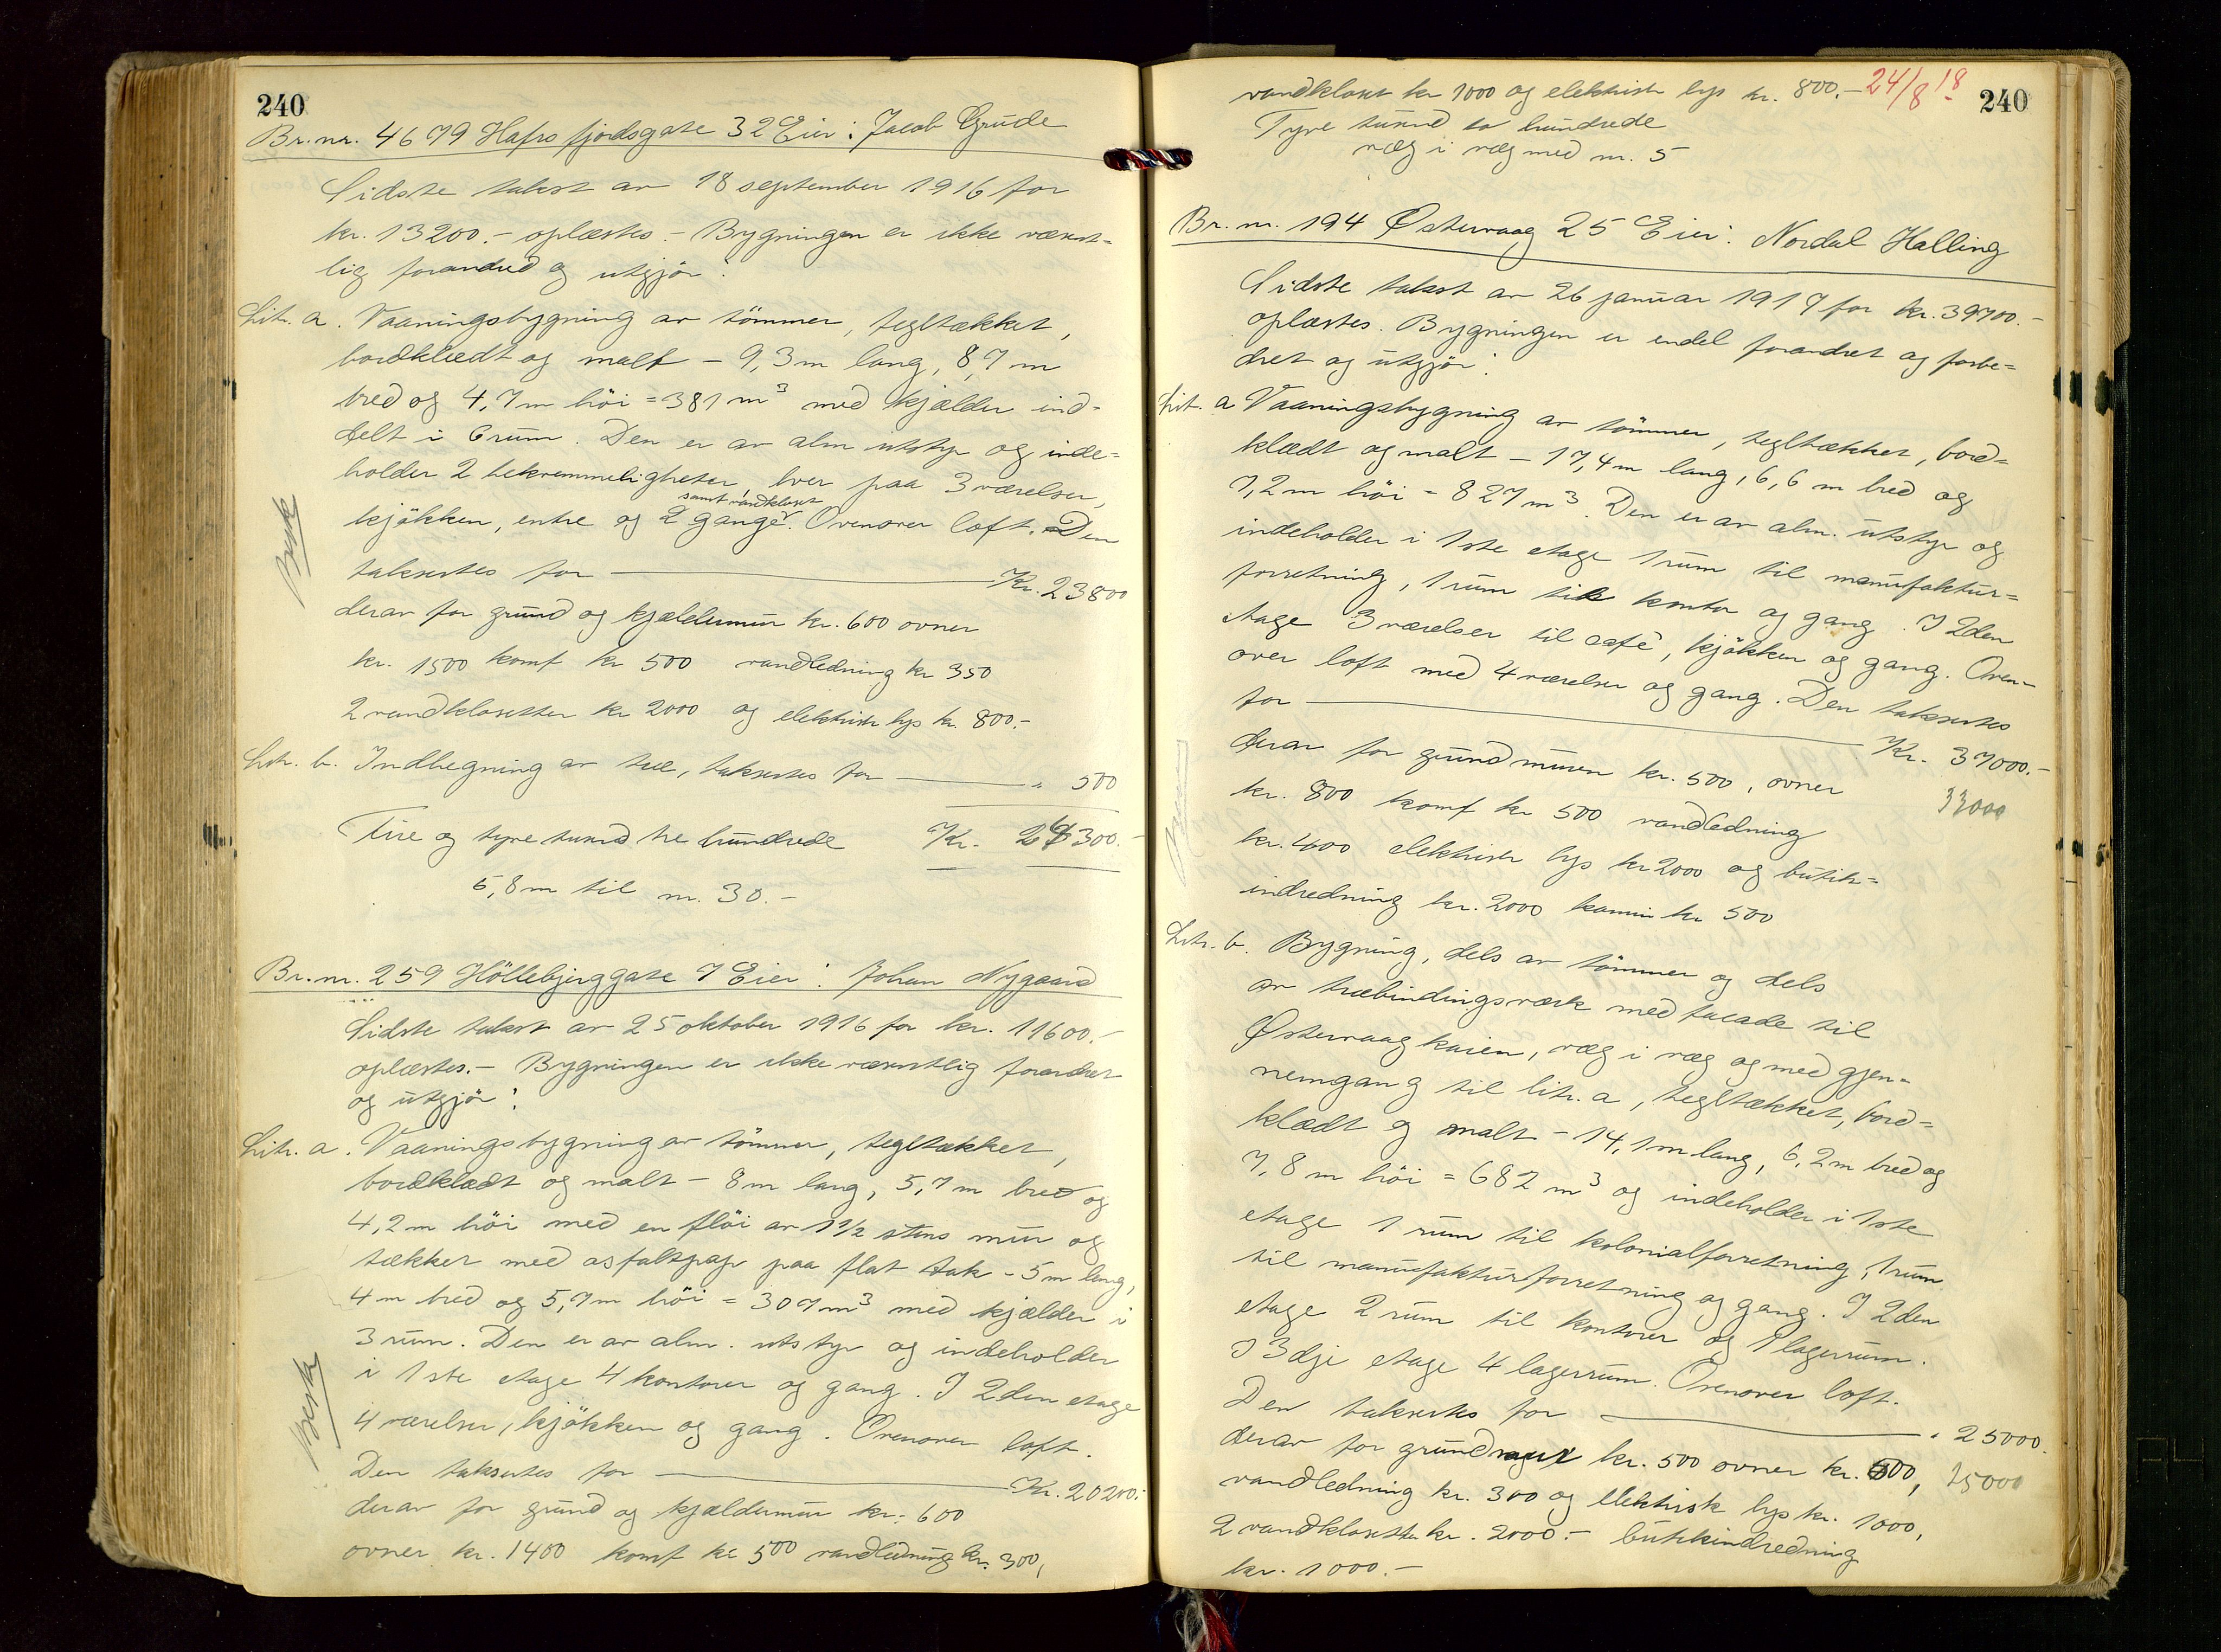 240
Br. nr. 4679 Hafrsfjordsgate 32 Eier: Jacob Grude
Sidste takst av 18 september 1916 for
kr. 13200.- oplæstes.- Bygningen er ikke væsent=
lig forandred og utgjör:
Litr. a. Vaaningsbygning av tömmer, tegltækket,
bordklædt og malt - 9,3 m lang, 8,7 m
bred og 4,7 m höi = 381 m³ med kjælder ind=
delt i 6 rum. Den er av alm utstyr og inde=
holder 2 bekvemmeligheter, hver paa 3 værelser,
samt vandkloset
kjökken, entre og 2 gange. Ovenover loft. Den
Besk
taksertes for Kr. 23800
derav for grund og kjældermur kr. 600 ovner
kr. 1500 komf kr 500 vandledning kr 350
2 vandklosetter kr 2000 og elektrisk lys kr. 800.-
Litr. b. Indhegning av træ, taksertes for " 500
Fire og tyve tusind tre hundrede Kr. 24300.-
5,8 m til nr. 30.-
Br. nr. 259 Höllebjerggate 7 Eier: Johan Nygaard
Sidste takst av 25 oktober 1916 for kr. 11600.-
oplæstes.- Bygningen er ikke væsentlig forandret
og utgjör:
Litr. a. Vaaningsbygning av tömmer, tegltækket,
bordklædt og malt - 8 m lang, 5,7 m bred og
4,2 m höi med en flöi av 1½ stens mur og
tækket med asfaltpap paa flat tak - 5 m lang,
4 m bred og 5,7 m höi = 307 m³ med kjælder i
3 rum. Den er av alm. utstyr og indeholder
i 1ste etage 4 kontorer og gang. I 2den etage
4 værelser, kjökken og gang. Ovenover loft.
Besk
Den taksertes for Kr. 20200.-
derav for grund og kjældermur kr. 600
ovner kr. 1400 komf kr 500 vandledning kr. 300,
vandkloset kr 1000 og elektrisk lys kr. 800.- 24/8 18
240
Tyve tusind to hundrede
væg i væg med nr. 5
Br. nr. 194 Østervaag 25 Eier: Nordal Halling
Sidste takst av 26 januar 1917 for kr. 39700.-
oplæstes. Bygningen er endel forandret og forbe=
dret og utgjör:
Litr. a Vaaningsbygning av tömmer, tegltækket, bord=
klædt og malt - 17,4 m lang, 6,6 m bred og
7,2 m höi = 827 m³. Den er av alm. utstyr og
indeholder i 1ste etage 1 rum til manufaktur=
forretning, 1 rum til kontor og gang. I 2den
etage 3 værelser til café, kjökken og gang. Oven=
over loft med 4 værelser og gang. Den taksertes
for Kr. 37000.-
derav for grundmuren kr. 500, ovner 33000
kr. 800 komf kr 500 vandledning
kr. 400 elektrisk lys kr 2000 og butik=
indredning kr. 2000 kamin kr 500
Litr. b. Bygning, dels av tömmer og dels
av træbindingsværk med facade til
Østervaag kaien, væg i væg og med gjen=
nemgang til litr. a, tegltækket, bord=
klædt og malt - 14,1 m lang, 6,2 m bred og
7,8 m höi = 682 m³ og indeholder i 1ste
etage 1 rum til kolonialforretning, 1 rum
til manufakturforretning og gang. I 2den
etage 2 rum til kontorer og 1 lagerrum.
I 3dje etage 4 lagerrum. Ovenover loft.
Den taksertes for " 25000.
derav for grundmur kr. 500 ovner kr. 600, 25000
vandledning kr. 300 og elektrisk lys kr. 1000,
2 vandklosetter kr. 2000.- butikindredning
kr. 1000.-